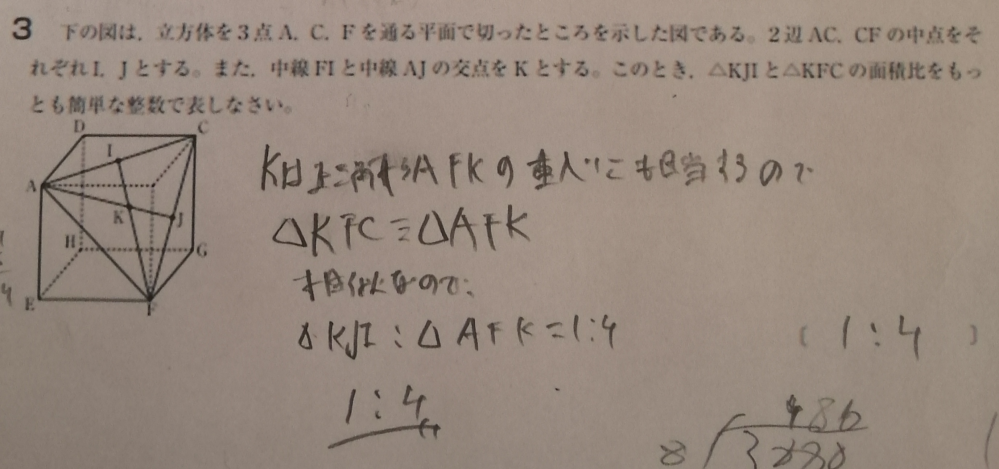 3 下の図は，立方体を3点A，C，Fを通る平面で切ったところを示した図である。2辺AC，CFの中点をそ
れぞれI，Jとする。また，中線FIと中線AJの交点をKとする。このとき，△KJIと△KFCの面積比をもっ
とも簡単な整数で表しなさい。
D C
I
A
K J
H G
E F
4
Kは正三角形AFKの重心にも相当するので
△KFC≡△AFK
相似なので、
△KJI：△AFK=1:4
1:4
( 1:4 )
486
8